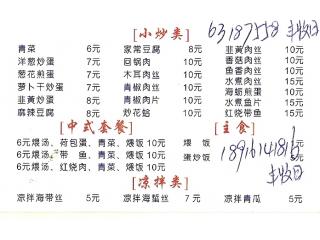 [小炒类] 63187558 丰收日
青菜 6元 家常豆腐 8元 韭黄肉丝 10元
洋葱炒蛋 7元 回锅肉 10元 香菇肉丝 10元
葱花煎蛋 7元 木耳肉丝 10元 鱼香肉丝 10元
萝卜干炒蛋 7元 青椒肉丝 10元 水煮肉丝 15元
韭黄炒蛋 8元 青椒肉片 10元 海蛎煎蛋 10元
麻辣豆腐 8元 炒花蛤 10元 水煮鱼片 15元
红烧带鱼 15元
[中式套餐] [主食]
6元煨汤、荷包蛋、青菜、煨饭 10元 煨饭
6元煨汤、带鱼、青菜、煨饭 10元 蛋炒饭 5元
6元煨汤、红烧肉、青菜、煨饭 10元
丰收日
[凉拌类]
凉拌海带丝 5元 凉拌海蜇丝 7元 凉拌青瓜 5元